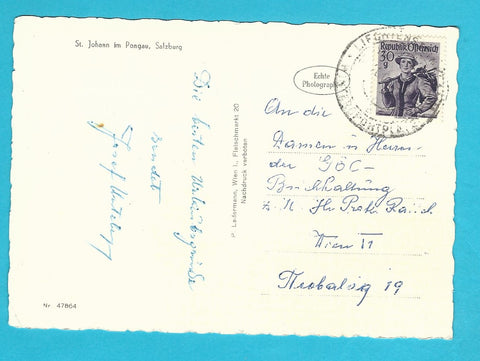 St. Johann im Pongau, Salzburg
Die besten Urlaubsgrüße
sendet
Josef
Nr. 47864
P. Ledermann, Wien I., Fleischmarkt 20
Nachdruck verboten
Echte
Photographie
Republik Österreich
30
g
LIECHTENS
An die
Damen u Herren
der GÖC-
Buchhaltung
z. H. Hr Prok.
Wien
19